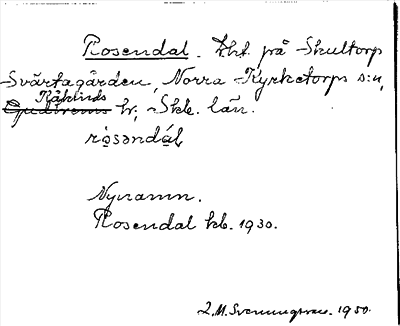 Rosendal. lht på Skultorp
Svärtagården, Norra Kyrketorps s:n,
Kåkinds
Gudhems hr, Skb. län.
rósəndál
Nynamn.
Rosendal kb. 1930.
1950.